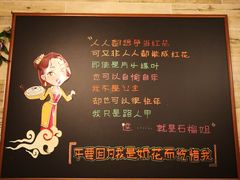 "人人都想争当红花
可又非人人都能成红花
即使是片小绿叶
也可以自愉自乐
我不是公主
却也可以很快乐
我只是路人甲
"您……就是石榴姐"
不要因为我是奶花而怜惜我